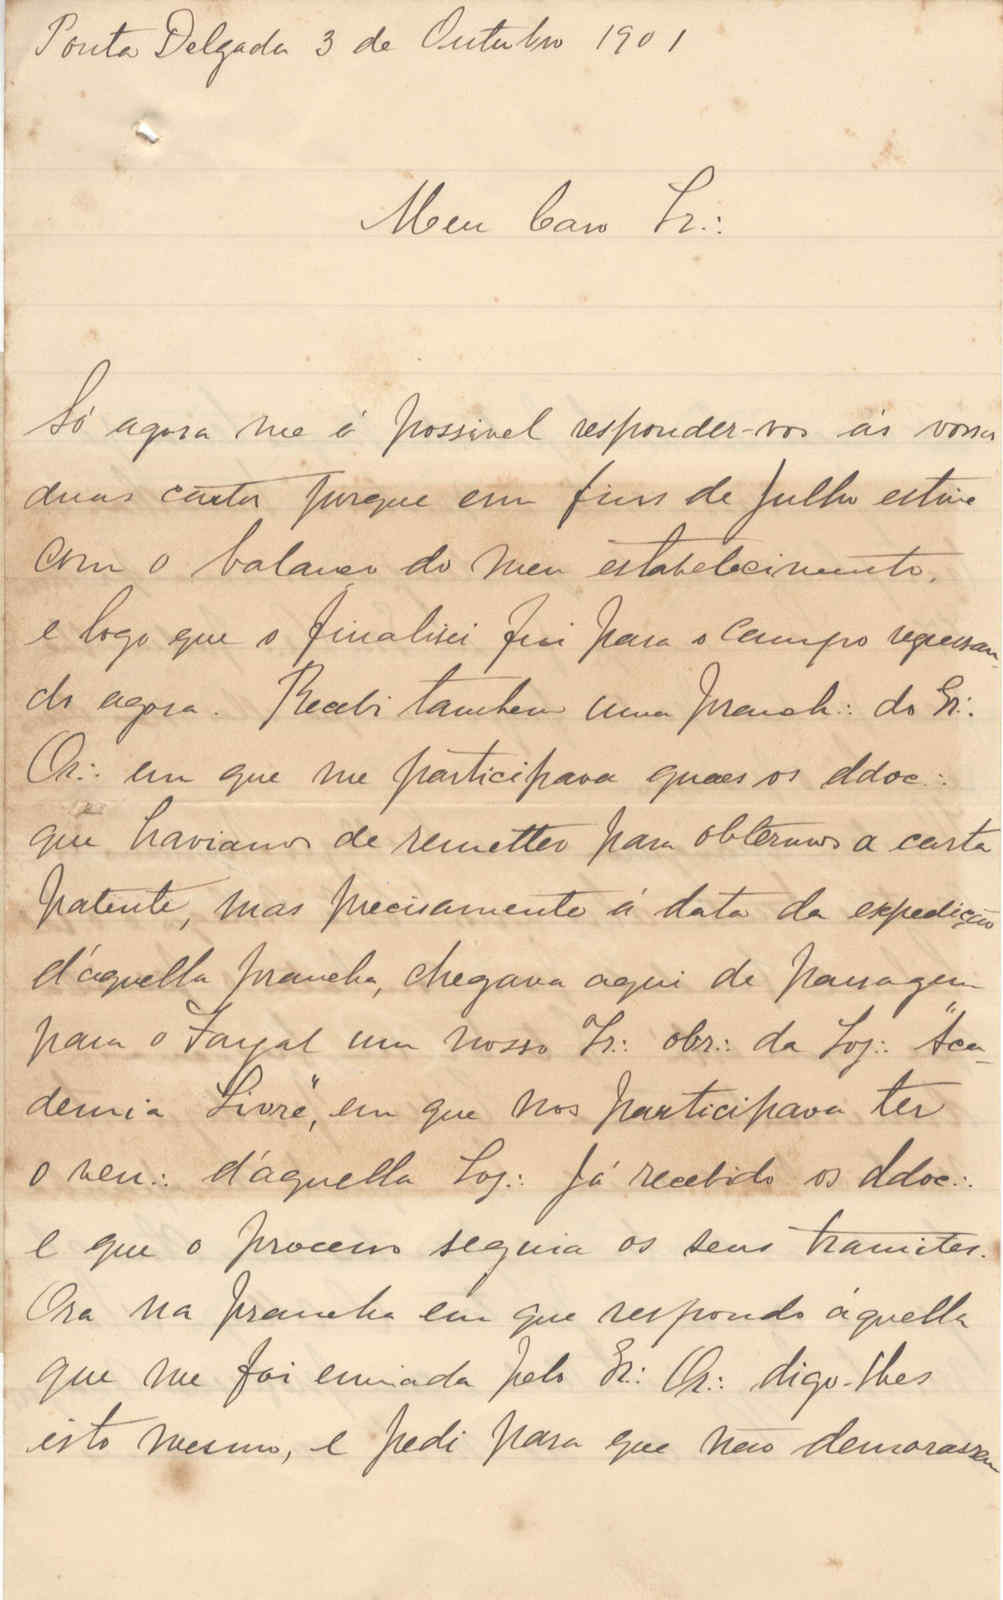 Ponta Delgada 3 de Outubro 1901
Meu Caro Ir∴
Só agora me é possivel responder-vos ás vossas
duas cartas porque em fins de Julho estive
com o balanço do meu estabelecimento,
e logo que o finalisei fui para o campo regressan-
do agora. Recebi tambem uma pranch∴ do Gr∴
Or∴ em que me participava quaes os ddoc∴
que haviamos de remetter para obtermos a carta
patente, mas precisamente á data da expedição
d'aquella prancha, chegava aqui de passagem
para o Fayal um nosso Ir∴ obr∴ da Loj∴ "Aca-
demia Livre", em que nos participava ter
o ven∴ d'aquella Loj∴ já recebido os ddoc∴
e que o processo seguia os seus tramites.
Ora na prancha em que respondo áquella
que me foi enviada pelo Gr∴ Or∴ digo-lhes
isto mesmo, e pedi para que não demorassem